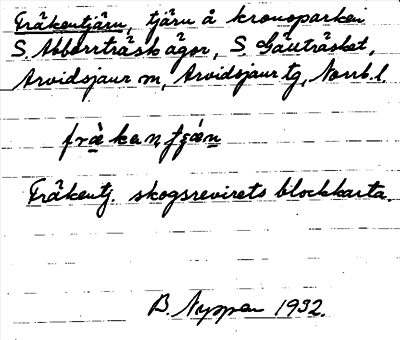 Fräkentjärn, tjärn å kronoparken
S. Abborrträskågor, S. Gäuträsket,
Arvidsjaur sn, Arvidsjaur tg, Norrb. l.
fràkan, tjǽn
Fräkentj. skogsrevirets blockkarta.
B. Nyppen 1932.